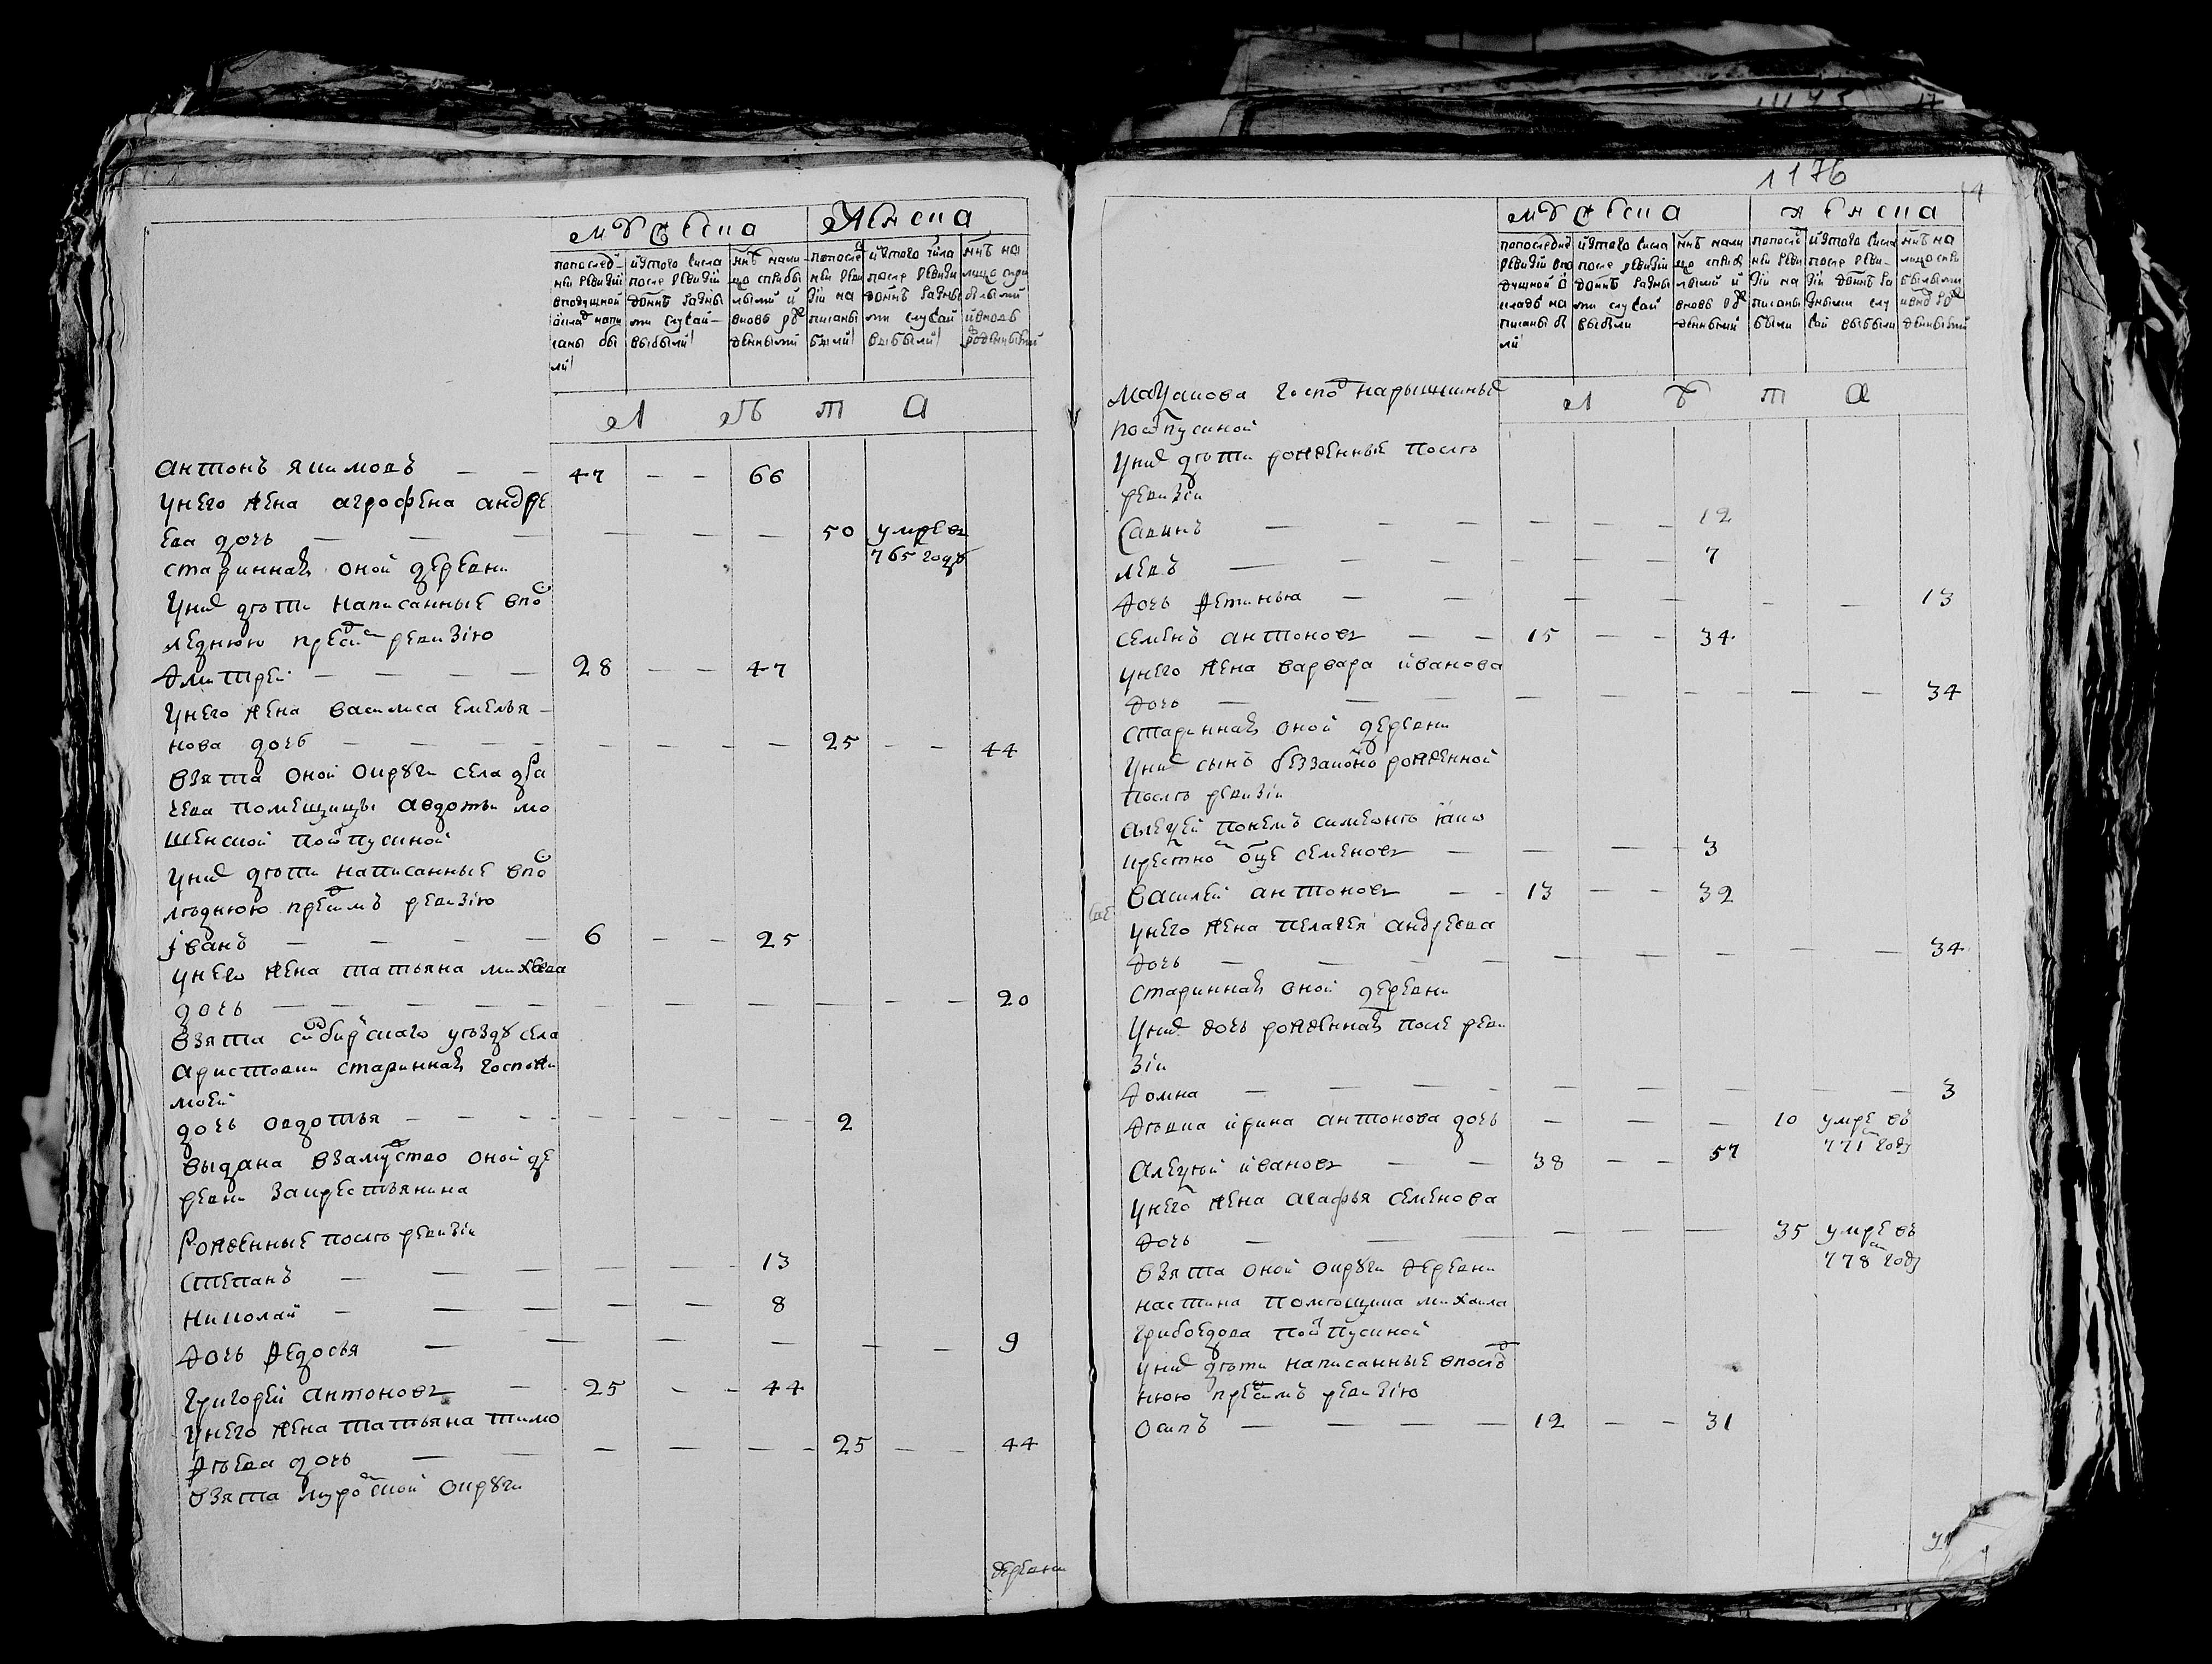 мужеска
женска
попослед-
ней ревизiи
вподушной
окладъ напи
саны бы
ли
изтого числа
после ревизiи
донынѣ разны
ми случаи-
выбыли
ннѣ нали-
цо спрiбы
лыми и
вновь рож
денными
попосле
ней реви
зiи на
писаны
были
изтого числа
после ревизiи
донынѣ разны
ми случаи
выбыли
ннѣ на
лицо спри
былыми
ивновь
рожденными
лѣта
антонъ якимовъ — — 47 — — 66
унего жена агрофена андре
ева дочь — — — 50 умре в
765 году
стариннаѧ оной деревни
Уних дѣти написанные впо
леднюю пред сим ревизiю
дмитрей — — — — 28 — — 47
Унего жена василиса емелья-
нова дочь — — — — 25 — — 44
взята оной округи села
чева помещицы авдотьи мо
шенской поотпускной
уних дѣти написанные впо
лѣднюю пред симъ ревизiю
iванъ — — — — 6 — — 25
унего жена татьяна михеева
дочь — — — — 20
взята симбирскаго уѣзду села
аристовки стариннаѧ госпожи
моей
дочь овдотья — — — 2
выдана взамужство оной де
ревни закрестьянина
Рожденные послѣ ревизiи
степанъ — — — 13
николай — — — 8
дочь ѳедосья — — — 9
григорей антоновъ — 25 — — 44
унего жена татьяна тимо
ѳѣева дочь — — — 25 — — 44
взята муромской округи
деревни
1176
мужеска
женска
попоследней
ревизiи впо
душной о
кладъ на
писаны бы
ли
изтого числа
после ревизiи
донынѣ разны
ми случаи
выбыли
ннѣ нали
цо спрiбы
лыми и
вновь рож
денными
попослѣ
ней реви
зiи на
писаны
были
изтого числа
после реви-
зiи донынѣ ра
зными слу
чаи выбыли
ннѣ на
лицо спри
былыми
ивновь рож
денными
лѣта
Мацакова господ нарышкиных
поотпускной
Уних дѣти рожденные послѣ
ревизiи
Савинъ — — — 12
левъ — — — 7
дочь ѳетинья — — — 13
семенъ антоновъ — — 15 — — 34
унего жена варвара иванова
дочь — — — 34
стариннаѧ оной деревни
Уних сынъ беззаконно рожденной
послѣ ревизiи
алеѯей
крестно отце семеновъ — — — 3
василей антоновъ — — 13 — — 32
унего жена пелагея андреева
дочь — — — 34
стариннаѧ оной деревни
Уних дочь рожденнаѧ после реви
зiи
домна — — — 3
дѣвка ирина антонова дочь — — — 10 умре въ
771м году
алеѯѣй ивановъ — — 38 — — 57
унего жена агафья семенова
дочь — — — 35 умре въ
778м году
взята оной округи деревни
настина помѣщика михаила
грибоедова поотпускной
уних дѣти написанные впослѣд
нюю пред симъ ревизiю
осипъ — — — — 12 — — 31